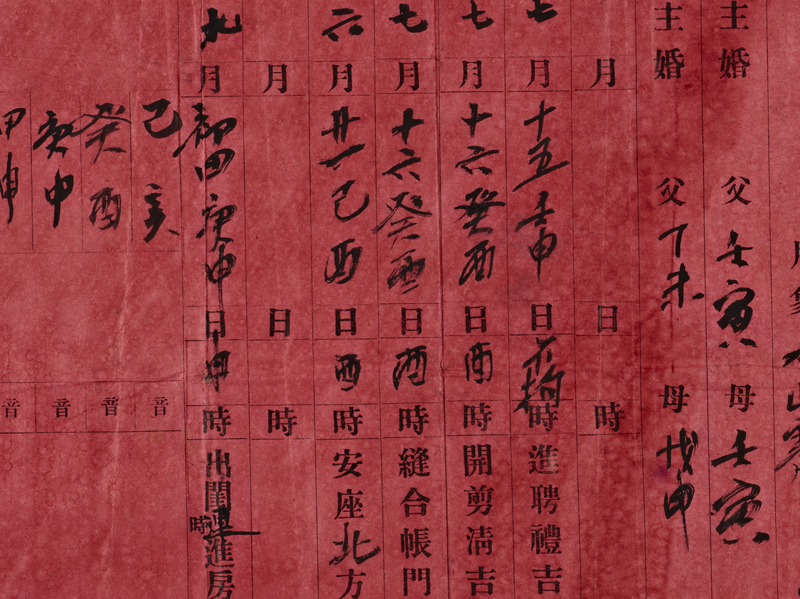 主婚 父 壬寅 母 壬寅
主婚 父 丁未 母 戊申
月 日 時
七月十五壬申日 時進聘禮吉
七月十六癸酉日酉時開剪清吉
七月十六癸酉日酉時縫合帳門
六月廿一己酉日酉時安座北方
月 日 時
九月初四庚申日申時出閨 時進房
己亥 音
癸酉 音
庚申 音
甲申 音